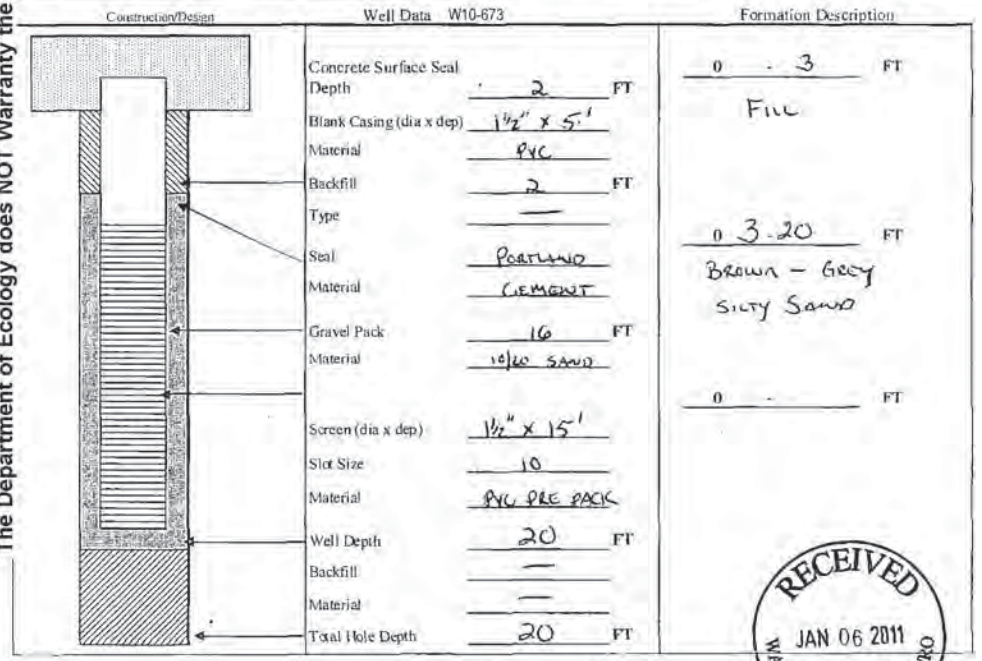 The Department of Ecology does NOT Warranty the
Construction/Design
Well Data W10-673
Formation Description
Concrete Surface Seal
Depth 2 FT
Blank Casing (dia x dep) 1 1/2" x 5'
Material PVC
Backfill 2 FT
Type —
Seal PORTLAND
Material CEMENT
Gravel Pack 16 FT
Material 10/20 SAND
Screen (dia x dep) 1 1/2" x 15'
Slot Size 10
Material PVC PRE PACK
Well Depth 20 FT
Backfill —
Material —
Total Hole Depth 20 FT
0 - 3 FT
FILL
0 3-20 FT
BROWN - GREY
SILTY SAND
0 - FT
RECEIVED
JAN 06 2011